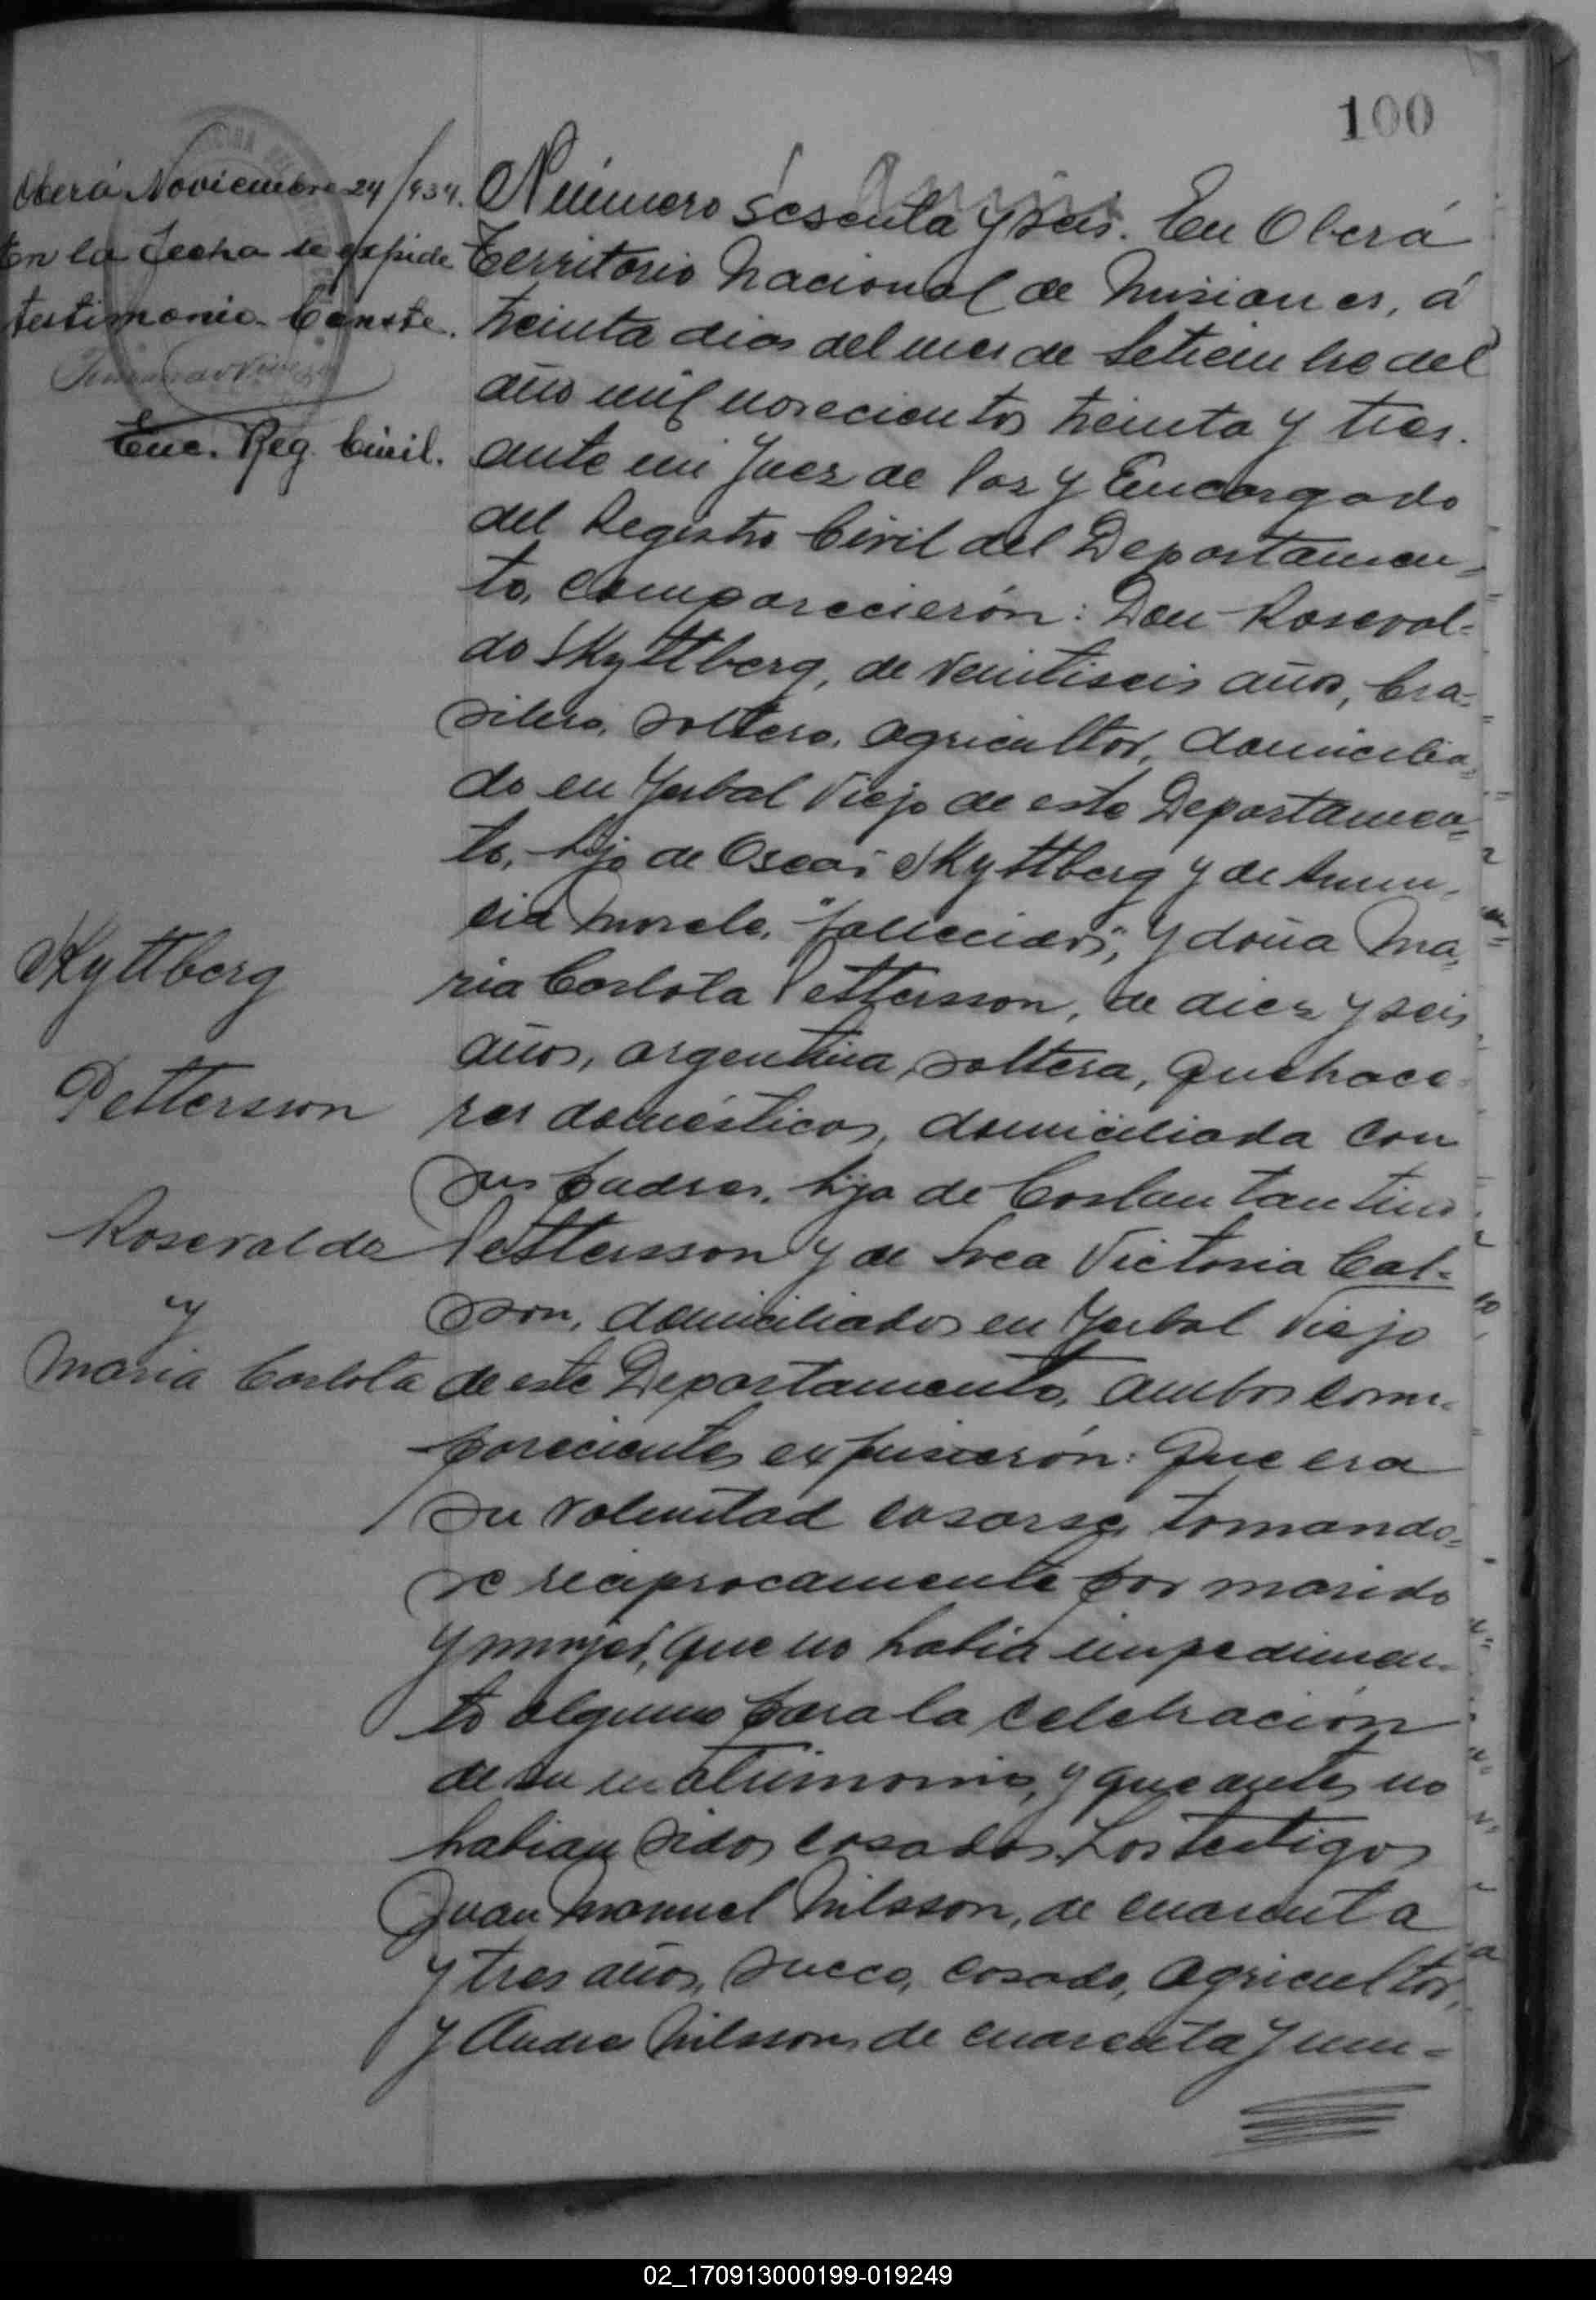 100
Oberá Noviembre 24/934.
En la fecha se expide
testimonio. Conste.
Enc. Reg. Civil.
Skyttberg
Pettersson
Roseval do
y
Maria Carlota
Número sesenta y seis. En Oberá
Territorio Nacional de Misiones, á
treinta dias del mes de Setiembre del
año mil novecientos treinta y tres.
ante mi Juez de Paz y Encargado
del Registro Civil del Departamen-
to, comparecierón: Don Roseval-
do Skyttberg, de veintiseis años, bra-
silero, soltero, agricultor, domicilia-
do en Yerbal Viejo de este Departamen-
to, hijo de Oscar Skyttberg y de Anun-
cia Morele, "fallecidos", y doña Ma-
ria Carlota Pettersson, de diez y seis
años, argentina, soltera, quehace-
res domésticos, domiciliada con
sus padres, hija de Coslantantino
Pettersson y de Svea Victoria Cal-
son, domiciliados en Yerbal Viejo
de este Departamento, ambos com-
parecientes expusierón: Que era
su voluntad casarse, tomando-
se reciprocamente por marido
y mujer, que no habia impedimen-
to alguno para la celebración
de su matrimonio, y que antes no
habian sidos casados. Los testigos
Juan Manuel Nilsson, de cuarenta
y tres años, sueco, casado, agricultor,
y Andres Nilsson, de cuarenta y un-
02_170913000199-019249